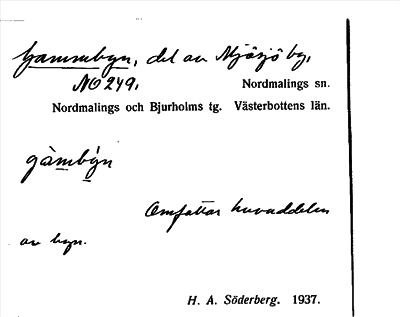 Gammbyn, del av Mjösjö by,
NO 249. Nordmalings sn.
Nordmalings och Bjurholms tg. Västerbottens län.
gàmbýn
Omfattar huvuddelen
av byn.
H. A. Söderberg. 1937.